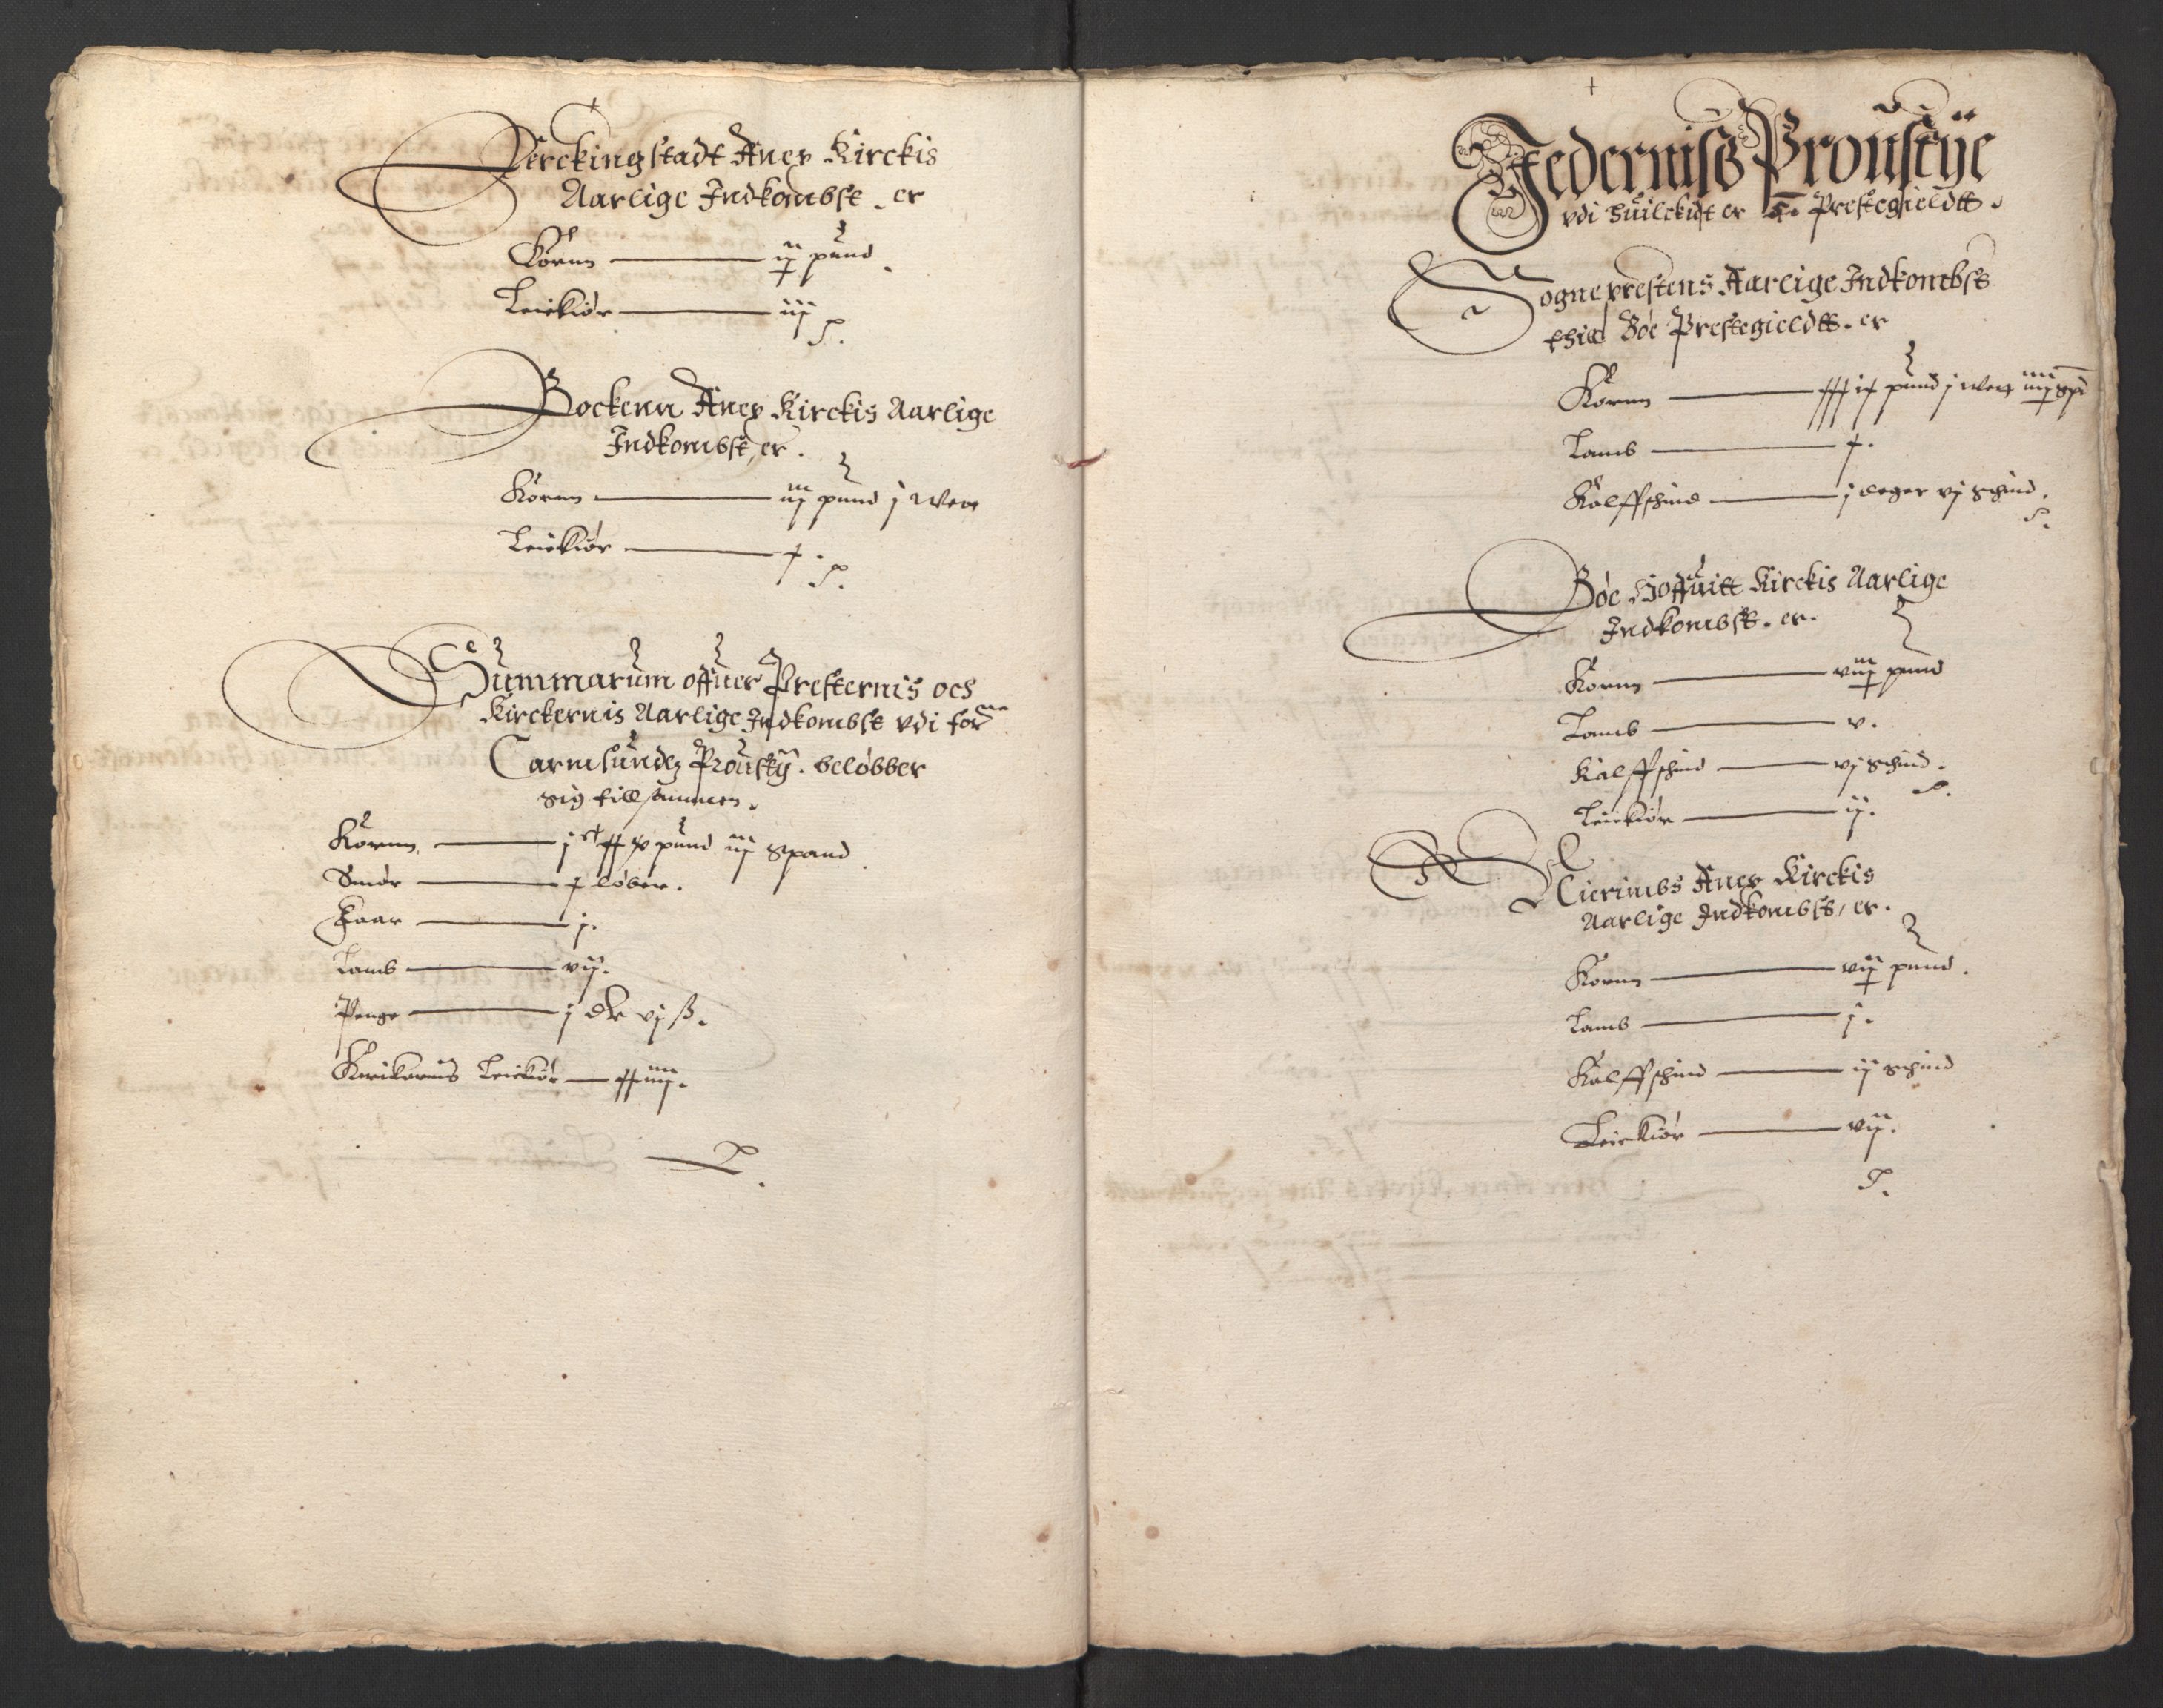 Ferckingstadt Anex Kirckis
Aarlige Indkombst. er
Kornn — ij pund.
Leiekiør — iij
S.
Bockenn Anex Kirckis Aarlige
Indkombst, er.
Kornn — iiij pund j wer
Leiekiør — x.
S.
Summarum offuer Presternis och
Kirckernis Aarlige Indkombst vdi for:ne
Carmsundz Prousty. beløbber
sig tillsammen.
Kornn — j c xx xv pund iiij Spand
Smør — x løber.
Faar — j.
Lamb — vij.
Penge — j dlr vj ß.
Kirckernis Leiekiør — xxiiij.
S.
Jedernisß Proustije
vdi Huilckidt er Prestegieldtt.
Sogneprestens Aarlige Indkombst
thil Bøe Prestegieldtt. er
Kornn — xxx ix pund j wer iiij Spd
Lamb — x.
Kalffschind — j deger vj Schind.
S.
Bøe Hoffuitt Kirckis Aarlige
Indkombst. er.
Kornn — viij pund
Lamb — v.
Kalffschind — vj Schind.
S.
Leiekiør — ij.
Nierimbs Anex Kirckis
Aarlige Indkombst, er.
Kornn — vij pund.
Lamb — j.
Kalffschind — ij Schind
Leiekiør — vij.
S.